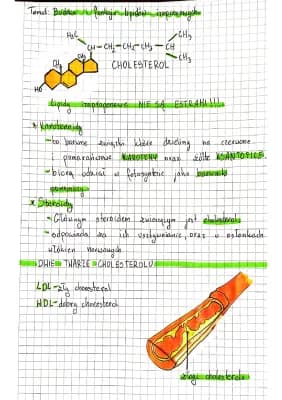 Temat: Budowa i funkcje lipidów izoprenowych
H₃C
CH-CH₂-CH₂-CH₂-CH
CH₃
CH₃
CH₃
CH₃
HO
CHOLESTEROL
Lipidy izoprenowe NIE SĄ ESTRAMI!!!
* Karotenoidy
- to barwne związki, które dzielimy na czerwone
i pomarańczowe KAROTENY oraz żółte KSANTOFILE.
- biorą udział w fotosyntezie jako barwniki
* Steroidy
- Głównym steroidem zwierzęcym jest cholesterol
- odpowiada za ich usztywnianie, oraz w osłonkach
włókien nerwowych
DWIE TWARZE CHOLESTEROLU
LDL-zły cholesterol
HDL-dobry cholesterol
złogi cholesterolu